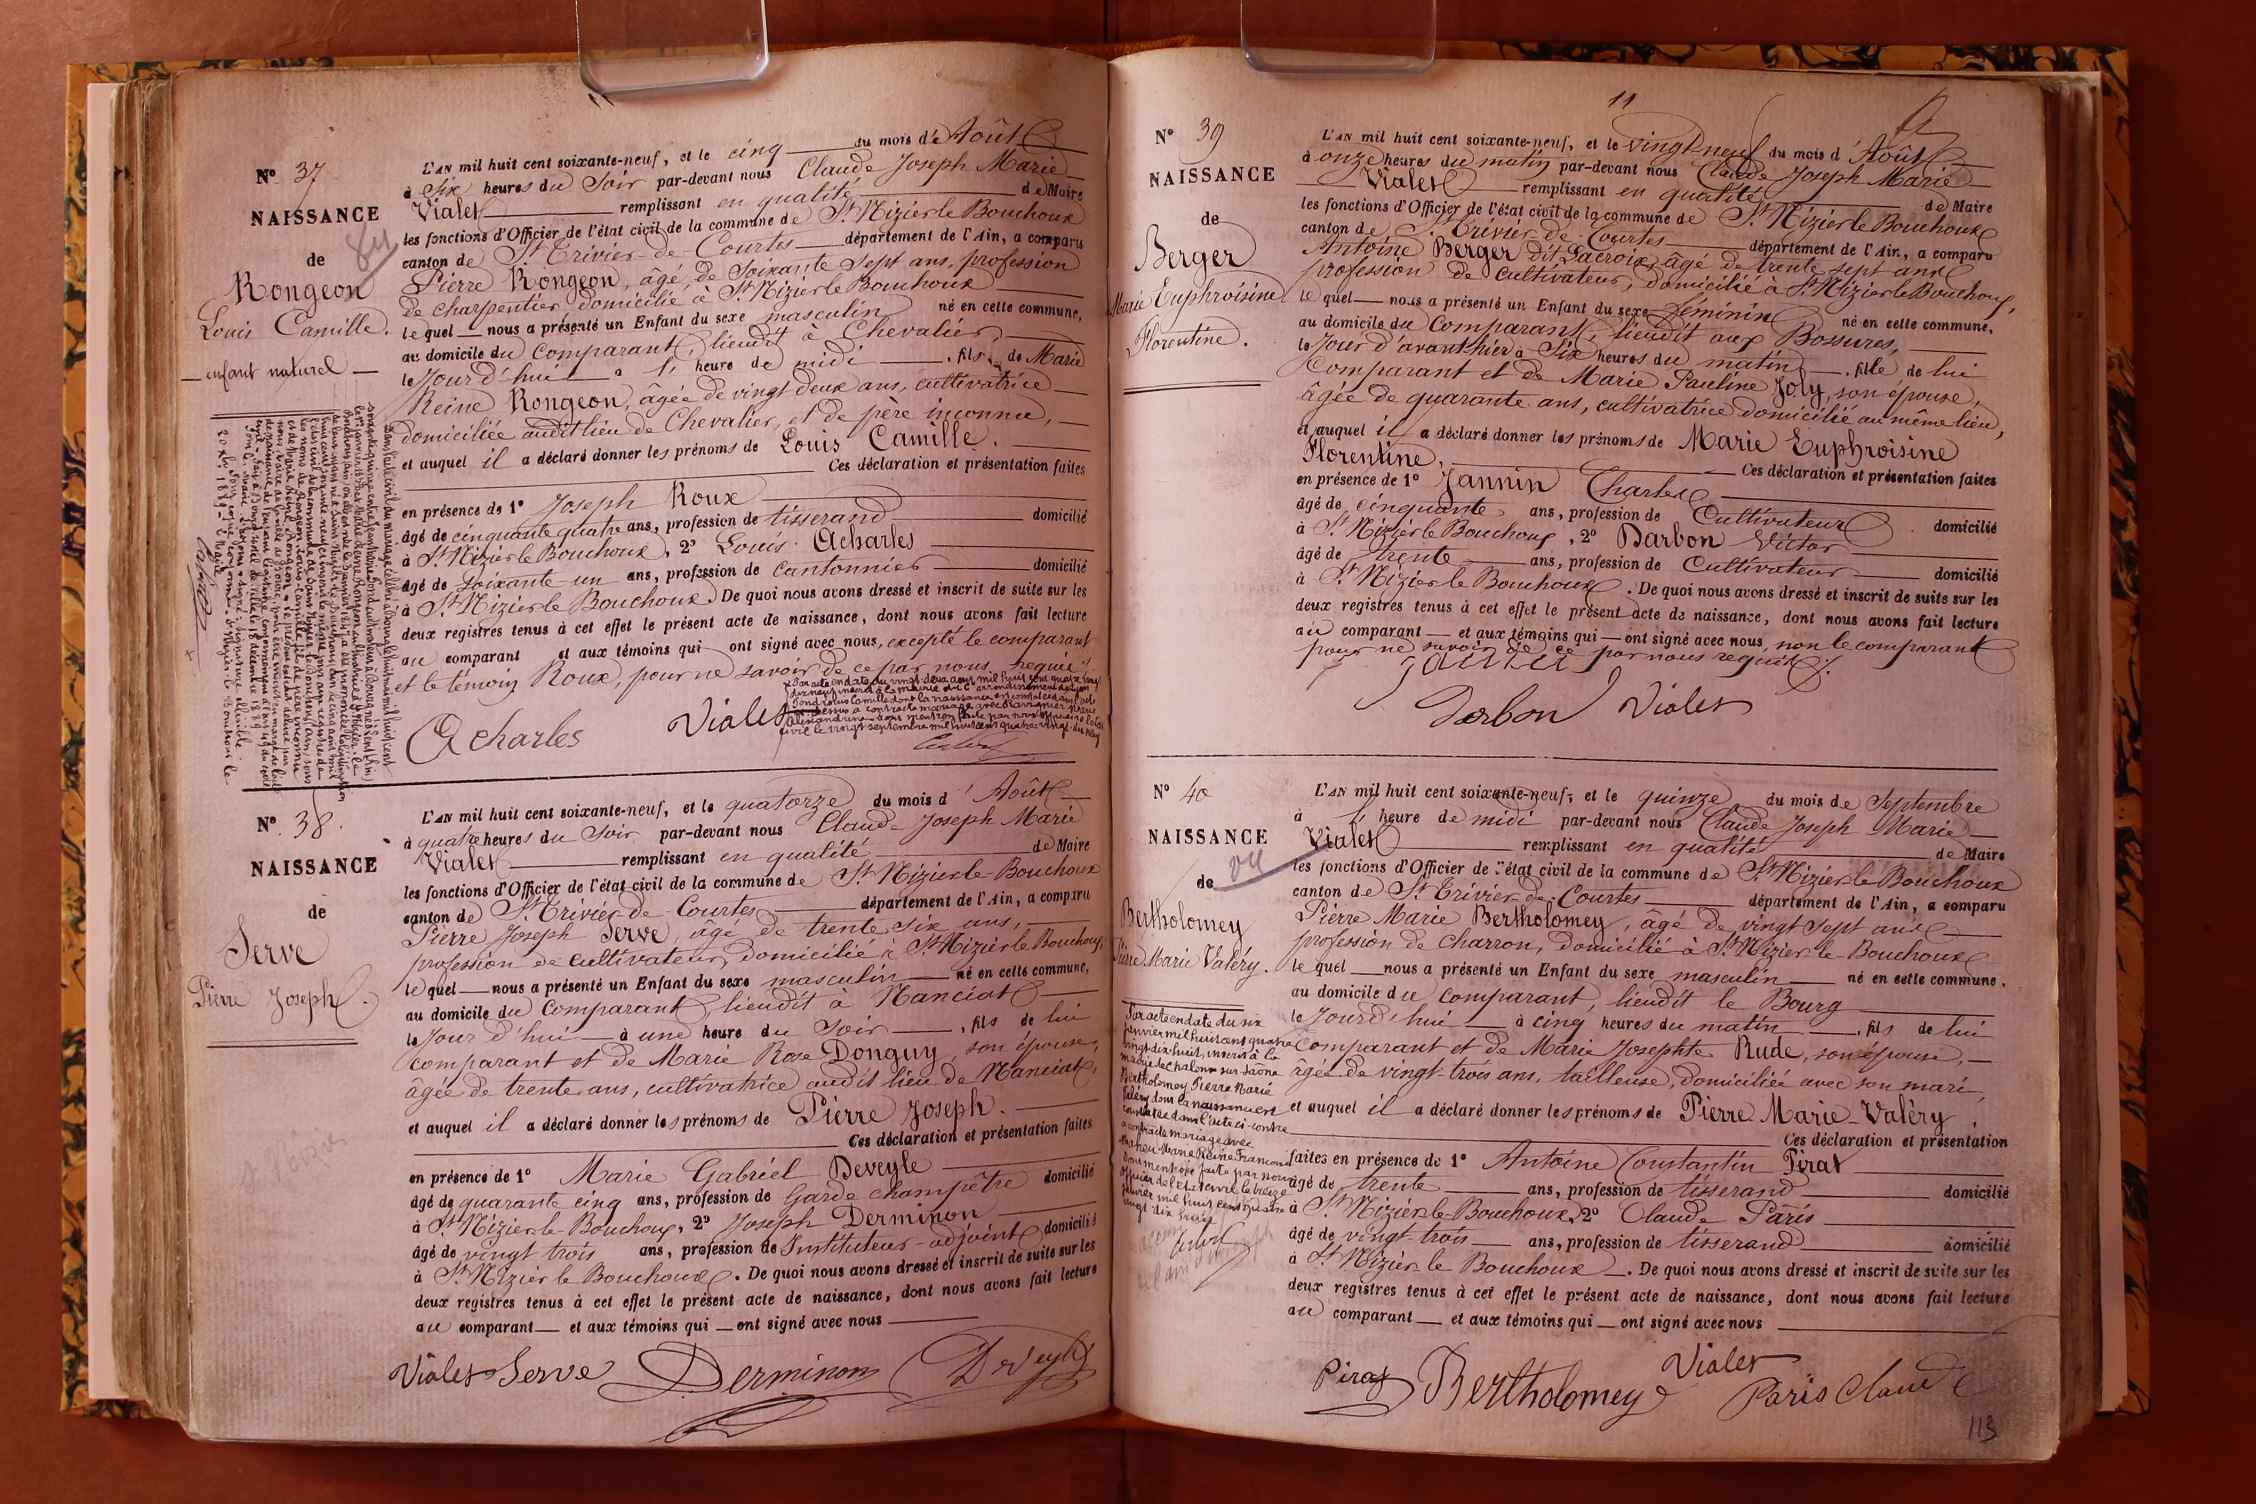 11
N° 37
NAISSANCE
de
84
Rongeon
Louis Camille.
enfant naturel
L'AN mil huit cent soixante-neuf, et le cinq du mois d'Août
à Six heures du Soir par-devant nous Claude Joseph Marie
Vialet remplissant en qualité de Maire
les fonctions d'Officier de l'état civil de la commune de St Nizier le Bouchoux
canton de St Trivier-de-Courtes département de l'Ain, a comparu
Pierre Rongeon, âgé de soixante sept ans, profession
de charpentier domicilié à St Nizier le Bouchoux
lequel nous a présenté un Enfant du sexe masculin né en cette commune,
au domicile du Comparant, lieudit à Chevalier,
le Jour d'hui a 1 heure de midi , fils de Marie
Reine Rongeon, âgée de vingt deux ans, cultivatrice
domiciliée audit lieu de Chevalier, et de père inconnu,
et auquel il a déclaré donner les prénoms de Louis Camille.
Ces déclaration et présentation faites
en présence de 1° Joseph Roux
âgé de cinquante quatre ans, profession de tisserand domicilié
à St Nizier le Bouchoux, 2° Louis Acharles
âgé de soixante un ans, profession de cantonnier domicilié
à St Nizier le Bouchoux. De quoi nous avons dressé et inscrit de suite sur les
deux registres tenus à cet effet le présent acte de naissance, dont nous avons fait lecture
au comparant et aux témoins qui ont signé avec nous, excepté le comparant
et le témoin Roux, pour ne savoir de ce par nous requis
Par acte en date du vingt-deux août mil huit cent quatre vingt
dix neuf inscrit à la mairie du arrondissement de Lyon
Louis Camille dont la naissance est constatée dans l'acte
ci-dessus a contracté mariage avec
Alexandrine dont mention faite par nous officier de l'état
civil le vingt septembre mil huit cent quatre-vingt-dix neuf
Acharles Vialet
N° 38.
NAISSANCE
de
Serve
Pierre Joseph.
L'AN mil huit cent soixante-neuf, et le quatorze du mois d'Août
à quatre heures du Soir par-devant nous Claude Joseph Marie
Vialet remplissant en qualité de Maire
les fonctions d'Officier de l'état civil de la commune de St Nizier le Bouchoux
canton de St Trivier-de-Courtes département de l'Ain, a comparu
Pierre Joseph Serve, âgé de trente six ans,
profession de cultivateur, domicilié à St Nizier le Bouchoux,
lequel nous a présenté un Enfant du sexe masculin né en cette commune,
au domicile du Comparant, lieudit à Nanciat
le Jour d'hui à une heure du Soir , fils de lui
comparant et de Marie Rose Donguy, son épouse,
âgée de trente ans, cultivatrice audit lieu de Nanciat,
et auquel il a déclaré donner les prénoms de Pierre Joseph.
Ces déclaration et présentation faites
en présence de 1° Marie Gabriel Deveyle
âgé de quarante cinq ans, profession de Garde champêtre domicilié
à St Nizier le Bouchoux, 2° Joseph Derminon
âgé de vingt trois ans, profession de Instituteur-adjoint domicilié
à St Nizier le Bouchoux. De quoi nous avons dressé et inscrit de suite sur les
deux registres tenus à cet effet le présent acte de naissance, dont nous avons fait lecture
au comparant et aux témoins qui ont signé avec nous
Vialet Serve Derminon Deveyle
11
N° 39
NAISSANCE
de
Berger
Marie Euphroisine
Florentine.
L'AN mil huit cent soixante-neuf, et le vingt-neuf du mois d'Août
à onze heures du matin par-devant nous Claude Joseph Marie
Vialet remplissant en qualité de Maire
les fonctions d'Officier de l'état civil de la commune de St Nizier le Bouchoux
canton de St Trivier-de-Courtes département de l'Ain, a comparu
Antoine Berger dit Lacroix, âgé de trente sept ans
profession de cultivateur, domicilié à St Nizier le Bouchoux,
lequel nous a présenté un Enfant du sexe féminin né en cette commune,
au domicile du Comparant, lieudit aux Bossures,
le Jour d'avant hier à Six heures du matin , fille de lui
Comparant et de Marie Pauline Joly, son épouse,
âgée de quarante ans, cultivatrice domicilié au même lieu,
et auquel il a déclaré donner les prénoms de Marie Euphroisine
Florentine, Ces déclaration et présentation faites
en présence de 1° Jannin Charles
âgé de cinquante ans, profession de Cultivateur domicilié
à St Nizier le Bouchoux, 2° Darbon Victor
âgé de trente ans, profession de Cultivateur domicilié
à St Nizier le Bouchoux. De quoi nous avons dressé et inscrit de suite sur les
deux registres tenus à cet effet le présent acte de naissance, dont nous avons fait lecture
au comparant et aux témoins qui ont signé avec nous, non le comparant
pour ne savoir de ce par nous requis.
Darbon Vialet
N° 40
NAISSANCE
de
Bertholomey
Pierre Marie Valéry.
Par acte en date du six
janvier mil huit cent quatre
vingt-dix-huit, inscrit à la
mairie de Chalon sur Saône
Bertholomey Pierre Marie
Valéry dont la naissance est
constatée dans l'acte ci-contre
a contracté mariage avec
Marie Reine Françoise
Dont mention faite par nous
officier de l'état civil le treize
janvier mil huit cent quatre
vingt dix huit
L'AN mil huit cent soixante-neuf, et le quinze du mois de Septembre
à 1 heure de midi par-devant nous Claude Joseph Marie
Vialet remplissant en qualité de Maire
les fonctions d'Officier de l'état civil de la commune de St Nizier-le-Bouchoux
canton de St Trivier-de-Courtes département de l'Ain, a comparu
Pierre Marie Bertholomey, âgé de vingt sept ans
profession de charron, domicilié à St Nizier-le-Bouchoux
lequel nous a présenté un Enfant du sexe masculin né en cette commune,
au domicile du comparant, lieudit le Bourg
le Jour d'hui à cinq heures du matin , fils de lui
Comparant et de Marie Josephte Rude, son épouse,
âgée de vingt-trois ans, tailleuse, domiciliée avec son mari,
et auquel il a déclaré donner les prénoms de Pierre Marie-Valéry
Ces déclaration et présentation
faites en présence de 1° Antoine Constantin Pirat
âgé de trente ans, profession de tisserand domicilié
à St Nizier-le-Bouchoux, 2° Claude Pâris
âgé de vingt-trois ans, profession de tisserand domicilié
à St Nizier le Bouchoux. De quoi nous avons dressé et inscrit de suite sur les
deux registres tenus à cet effet le présent acte de naissance, dont nous avons fait lecture
au comparant et aux témoins qui ont signé avec nous
Pirat Bertholomey Vialet Paris Claude
113